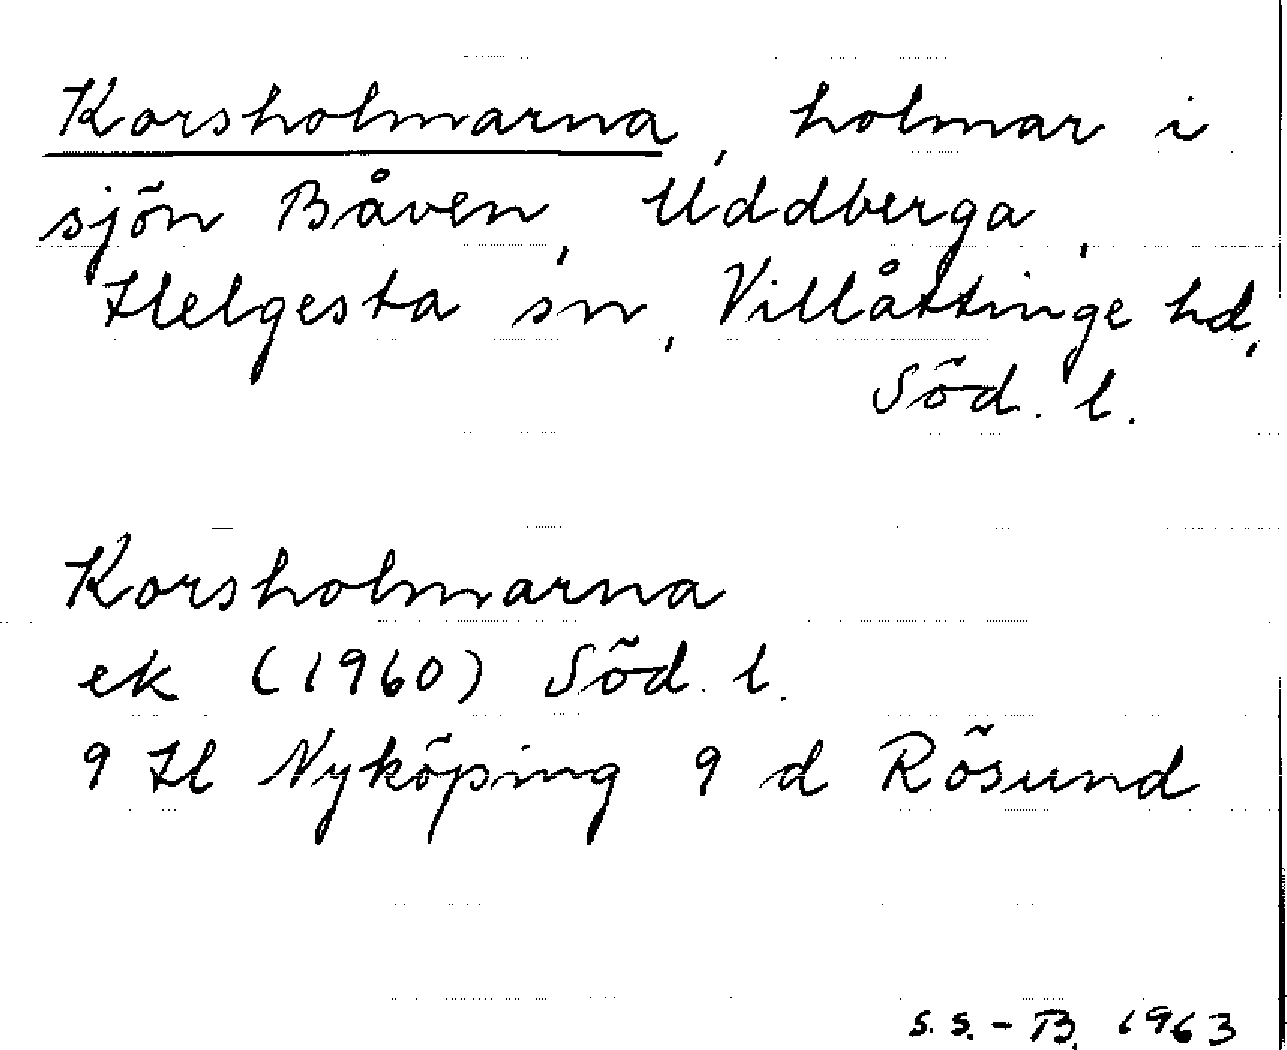 Korsholmarna, holmar i
sjön Båven, Uddberga,
Helgesta sn, Villåttinge hd,
Söd. l.
Korsholmarna
ek (1960) Söd. l.
9 H Nyköping 9 d Rösund
S.S.-B. 1963